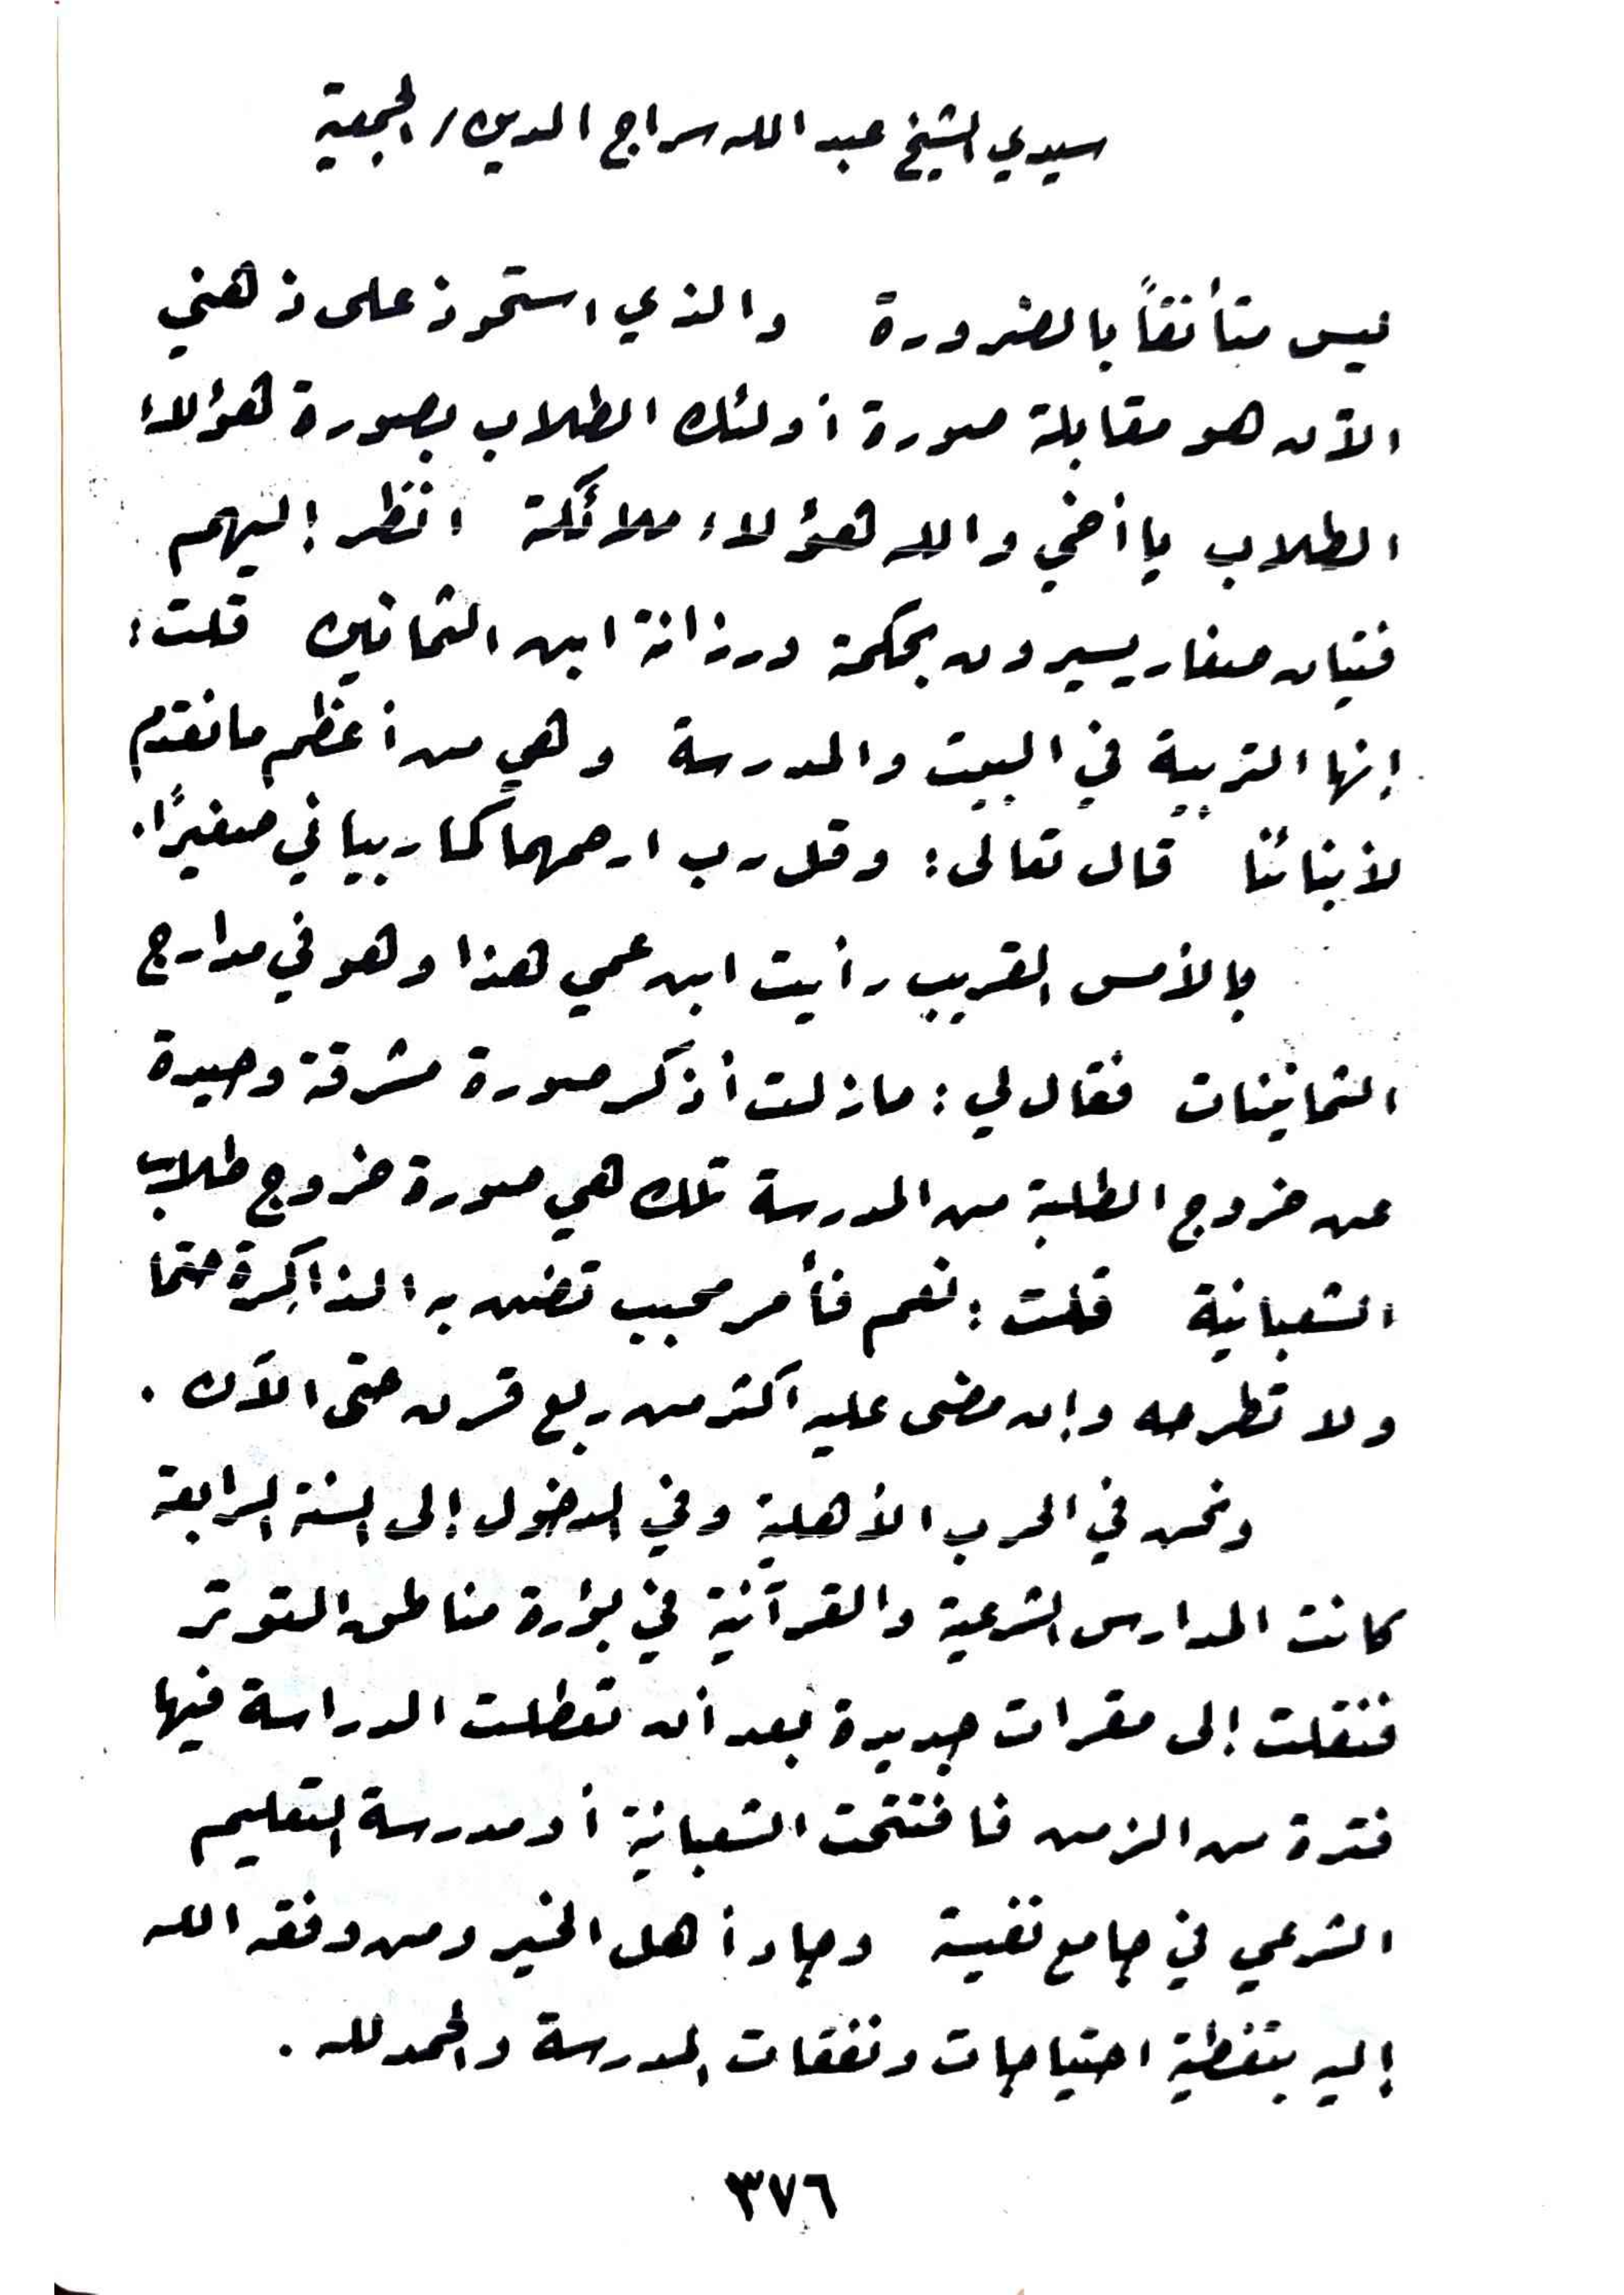 سيدي الشيخ عبد الله سراج الدين / الجمعية
ليس متأنقاً بالضرورة والذي استحوذ على ذهني
الآن هو مقابلة صورة أولئك الطلاب بصورة هؤلاء
الطلاب يا أخي والله هؤلاء ملائكة انظر إليهم
فتيان صغار يسيرون بحكمة ورزانة ابن الثمانين قلت:
إنها التربية في البيت والمدرسة وهي من أعظم ما نقدم
لأبنائنا قال تعالى: وقل رب ارحمهما كما ربياني صغيرًا.
بالأمس القريب رأيت ابن عمي هذا وهو في مدارج
الثمانينات فقال لي: ما زلت أذكر صورة مشرقة وحيدة
عن خروج الطلبة من المدرسة تلك هي صورة خروج طلاب
الشعبانية قلت: نعم فأمر محبب تضن به الذاكرة حتما
ولا تطرحه وإن مضى عليه أكثر من ربع قرن حتى الآن.
ونحن في الحرب الأهلية وفي الدخول إلى السنة الرابعة
كانت المدارس الشرعية والقرآنية في بؤرة مناطق التوتر
فنقلت إلى مقرات جديدة بعد أن تعطلت الدراسة فيها
فترة من الزمن فافتتحت الشعبانية أو مدرسة التعليم
الشرعي في جامع نفيسة وجاد أهل الخير ومن وفقه الله
إليه بتغطية احتياجات ونفقات المدرسة والحمد لله.
٣٧٦